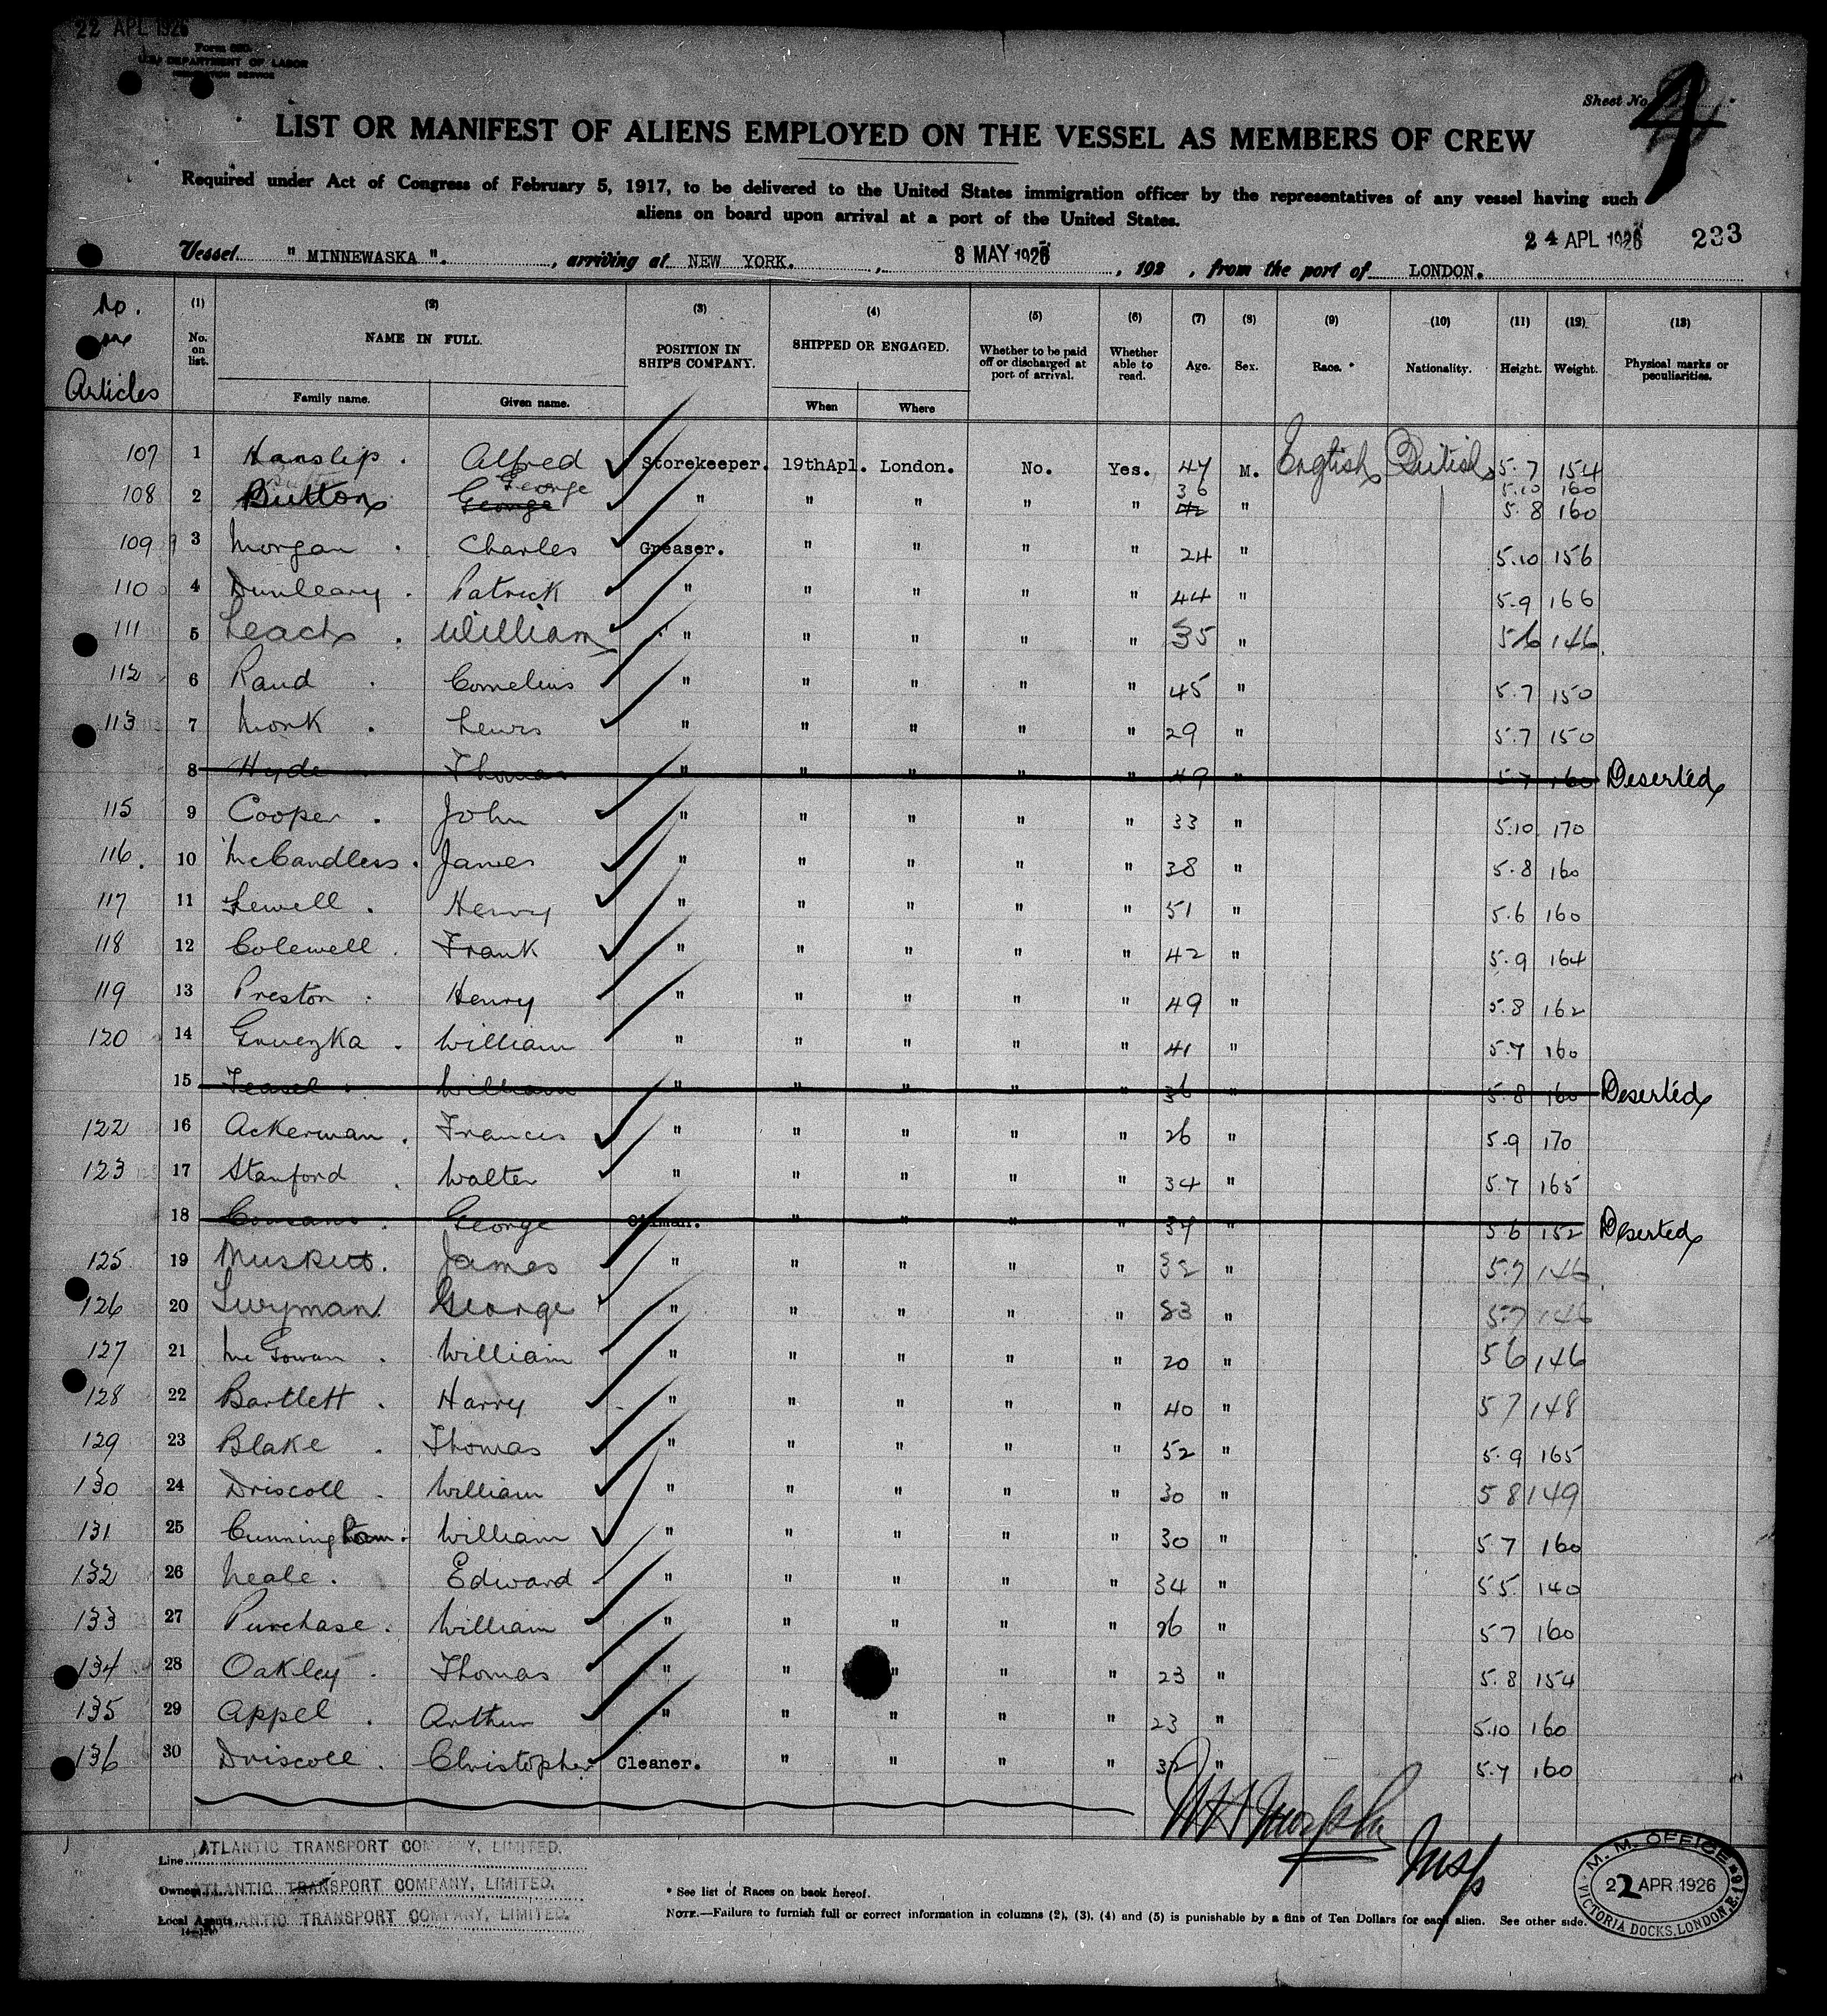 22 APL 1926
Form 680
U.S. DEPARTMENT OF LABOR
IMMIGRATION SERVICE
Sheet No. 4
LIST OR MANIFEST OF ALIENS EMPLOYED ON THE VESSEL AS MEMBERS OF CREW
Required under Act of Congress of February 5, 1917, to be delivered to the United States immigration officer by the representatives of any vessel having such
aliens on board upon arrival at a port of the United States.
24 APL 1926 233
Vessel " MINNEWASKA ", arriving at NEW YORK. , 8 MAY 1926 , 192 , from the port of LONDON.
No. on Articles
(1) (2) (3) (4) (5) (6) (7) (8) (9) (10) (11) (12) (13)
No. on list. NAME IN FULL. POSITION IN SHIP'S COMPANY. SHIPPED OR ENGAGED. Whether to be paid off or discharged at port of arrival. Whether able to read. Age. Sex. Race.* Nationality. Height. Weight. Physical marks or peculiarities.
Family name. Given name. When Where
107 1 Hanslip . Alfred Storekeeper. 19thApl. London. No. Yes. 47 M. English British 5.7 154
George 36 5.10 160
108 2 Button George " " " " " 42 " 5.8 160
109 3 Morgan . Charles Greaser. " " " " 24 " 5.10 156
110 4 Dunleary . Patrick " " " " " 44 " 5.9 166
111 5 Leach . William " " " " " 35 " 5.6 146
112 6 Rand . Cornelius " " " " " 45 " 5.7 150
113 7 Monk . Lewis " " " " " 29 " 5.7 150
8 Hyde Thomas " " " " " 49 " 5.7 160 Deserted
115 9 Cooper . John " " " " " 33 " 5.10 170
116. 10 McCandless . James " " " " " 38 " 5.8 160
117 11 Sewell . Henry " " " " " 51 " 5.6 160
118 12 Colewell . Frank " " " " " 42 " 5.9 164
119 13 Preston . Henry " " " " " 49 " 5.8 162
120 14 William " " " " " 41 " 5.7 160
15 Teasel . William " " " " " 36 " 5.8 160 Deserted
122 16 Ackerman . Frances " " " " " 26 " 5.9 170
123 17 Stanford . Walter " " " " " 34 " 5.7 165
18 George Oilman. " " " " 37 " 5.6 152 Deserted
125 19 James " " " " " 32 " 5.7 146
126 20 Twyman George " " " " " 33 " 5.7 146
127 21 McGowan . William " " " " " 20 " 5 6 146
128 22 Bartlett . Harry " " " " " 40 " 5 7 148
129 23 Blake . Thomas " " " " " 52 " 5.9 165
130 24 Driscoll . William " " " " " 30 " 5 8 149
131 25 Cunningham . William " " " " " 30 " 5 7 160
132 26 Neale . Edward " " " " " 34 " 5 5 140
133 27 Purchase . William " " " " " 26 " 5 7 160
134 28 Oakley . Thomas " " " " " 23 " 5.8 154
135 29 Appel . Arthur " " " " " 23 " 5.10 160
136 30 Driscoll . Christopher Cleaner. " " " " 32 " 5.7 160
Insp
Line ATLANTIC TRANSPORT COMPANY, LIMITED.
Owners ATLANTIC TRANSPORT COMPANY, LIMITED.
Local Agents ATLANTIC TRANSPORT COMPANY, LIMITED.
* See list of Races on back hereof.
NOTE.—Failure to furnish full or correct information in columns (2), (3), (4) and (5) is punishable by a fine of Ten Dollars for each alien. See other side.
M. M. OFFICE
22 APR 1926
VICTORIA DOCKS, LONDON, E.16